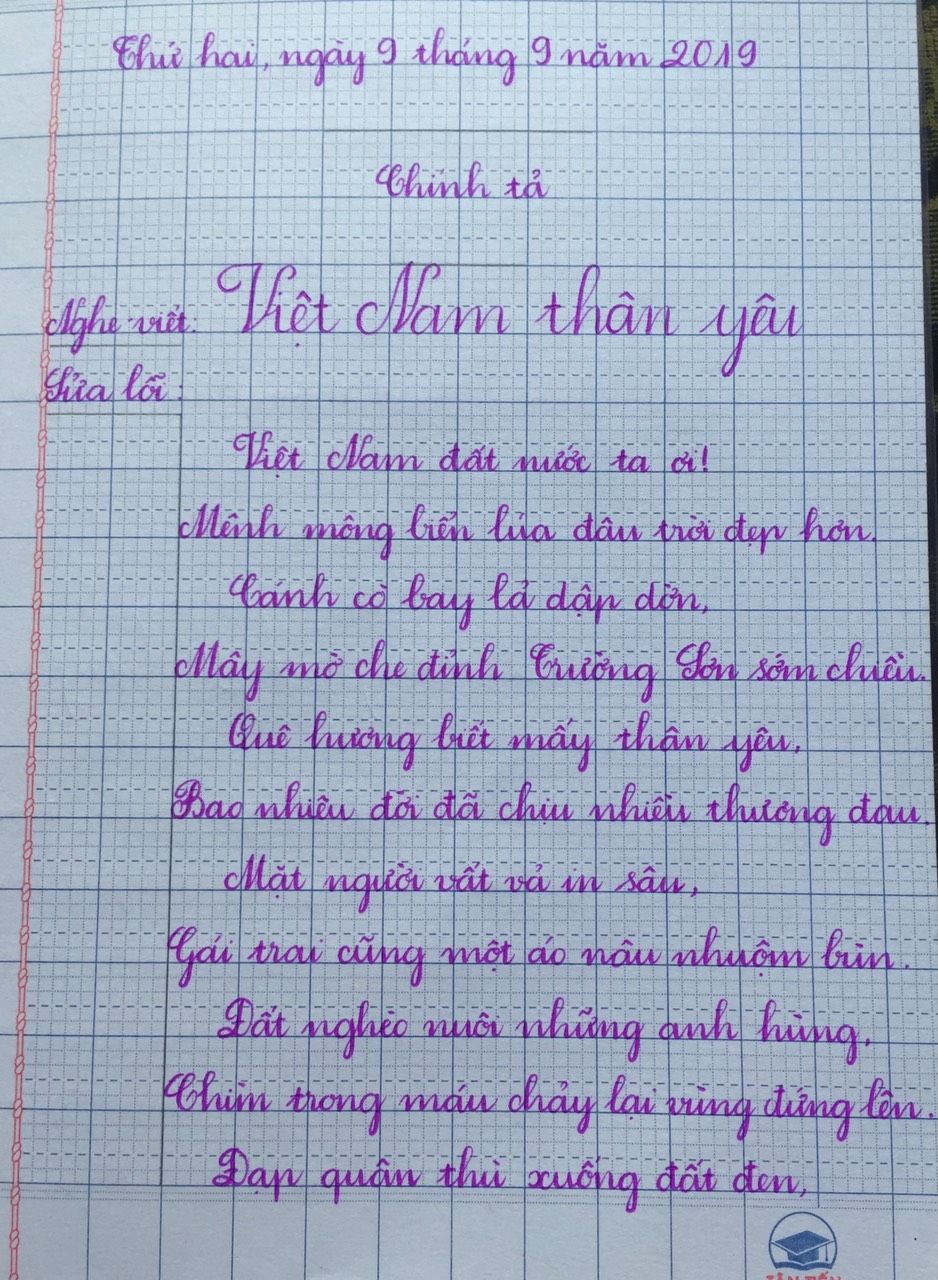 Thứ hai, ngày 9 tháng 9 năm 2019
Chính tả
Nghe viết: Việt Nam thân yêu
Sửa lỗi:
Việt Nam đất nước ta ơi!
Mênh mông biển lúa đâu trời đẹp hơn.
Cánh cò bay lả dập dờn,
Mây mờ che đỉnh Trường Sơn sớm chiều.
Quê hương biết mấy thân yêu,
Bao nhiêu đời đã chịu nhiều thương đau.
Mặt người vất vả in sâu,
Gái trai cũng một áo nâu nhuộm bùn.
Đất nghèo nuôi những anh hùng,
Chìm trong máu chảy lại vùng đứng lên.
Đạp quân thù xuống đất đen,
TÂN TIẾN